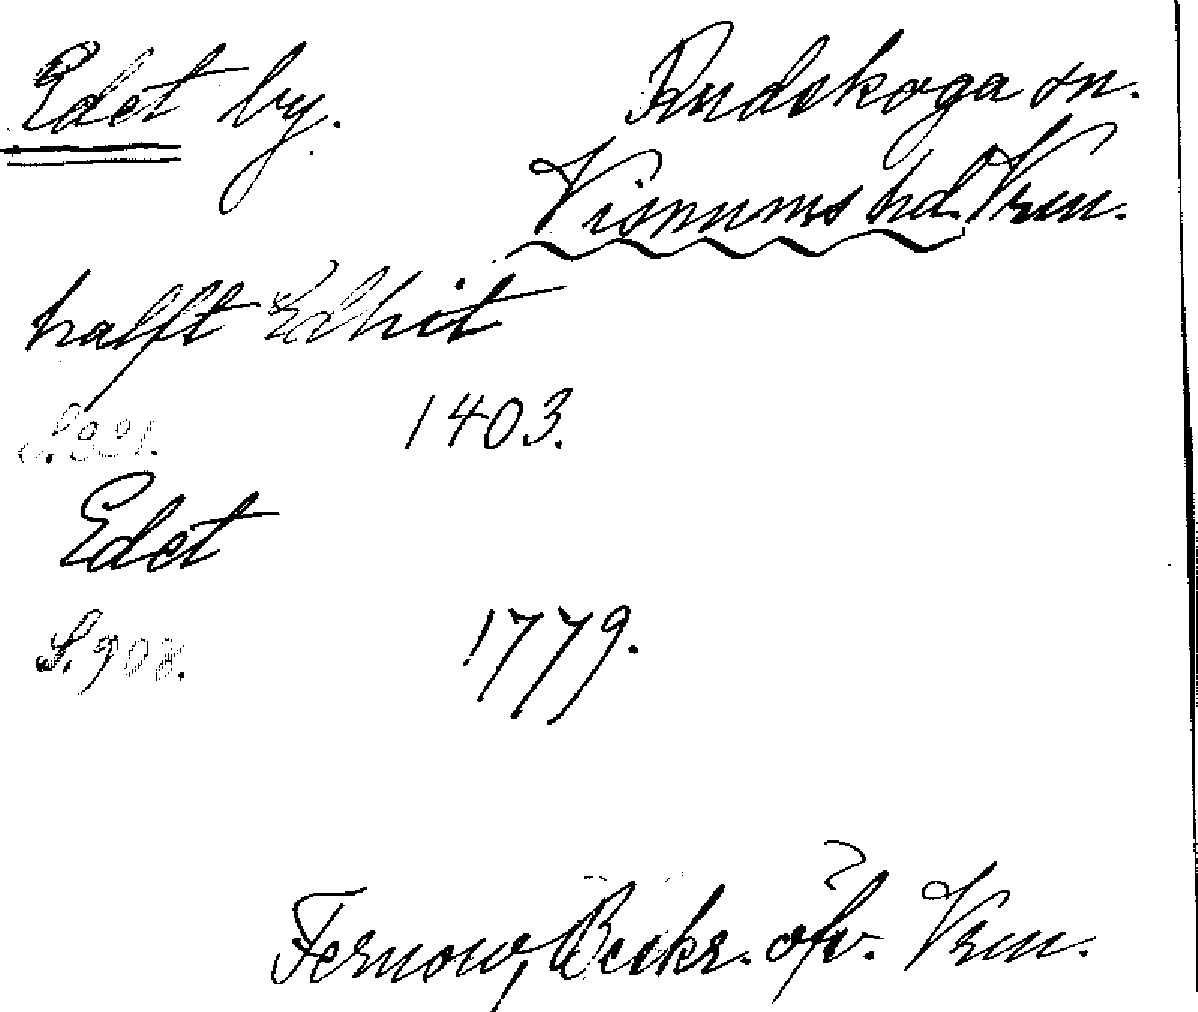 Edet by. Rudskoga sn.
Visnums hd. Vrm.
halfft Edhit
S. 331. 1403.
Edet
S. 908. 1779.
Fernow, Beskr. öfv. Vrm.